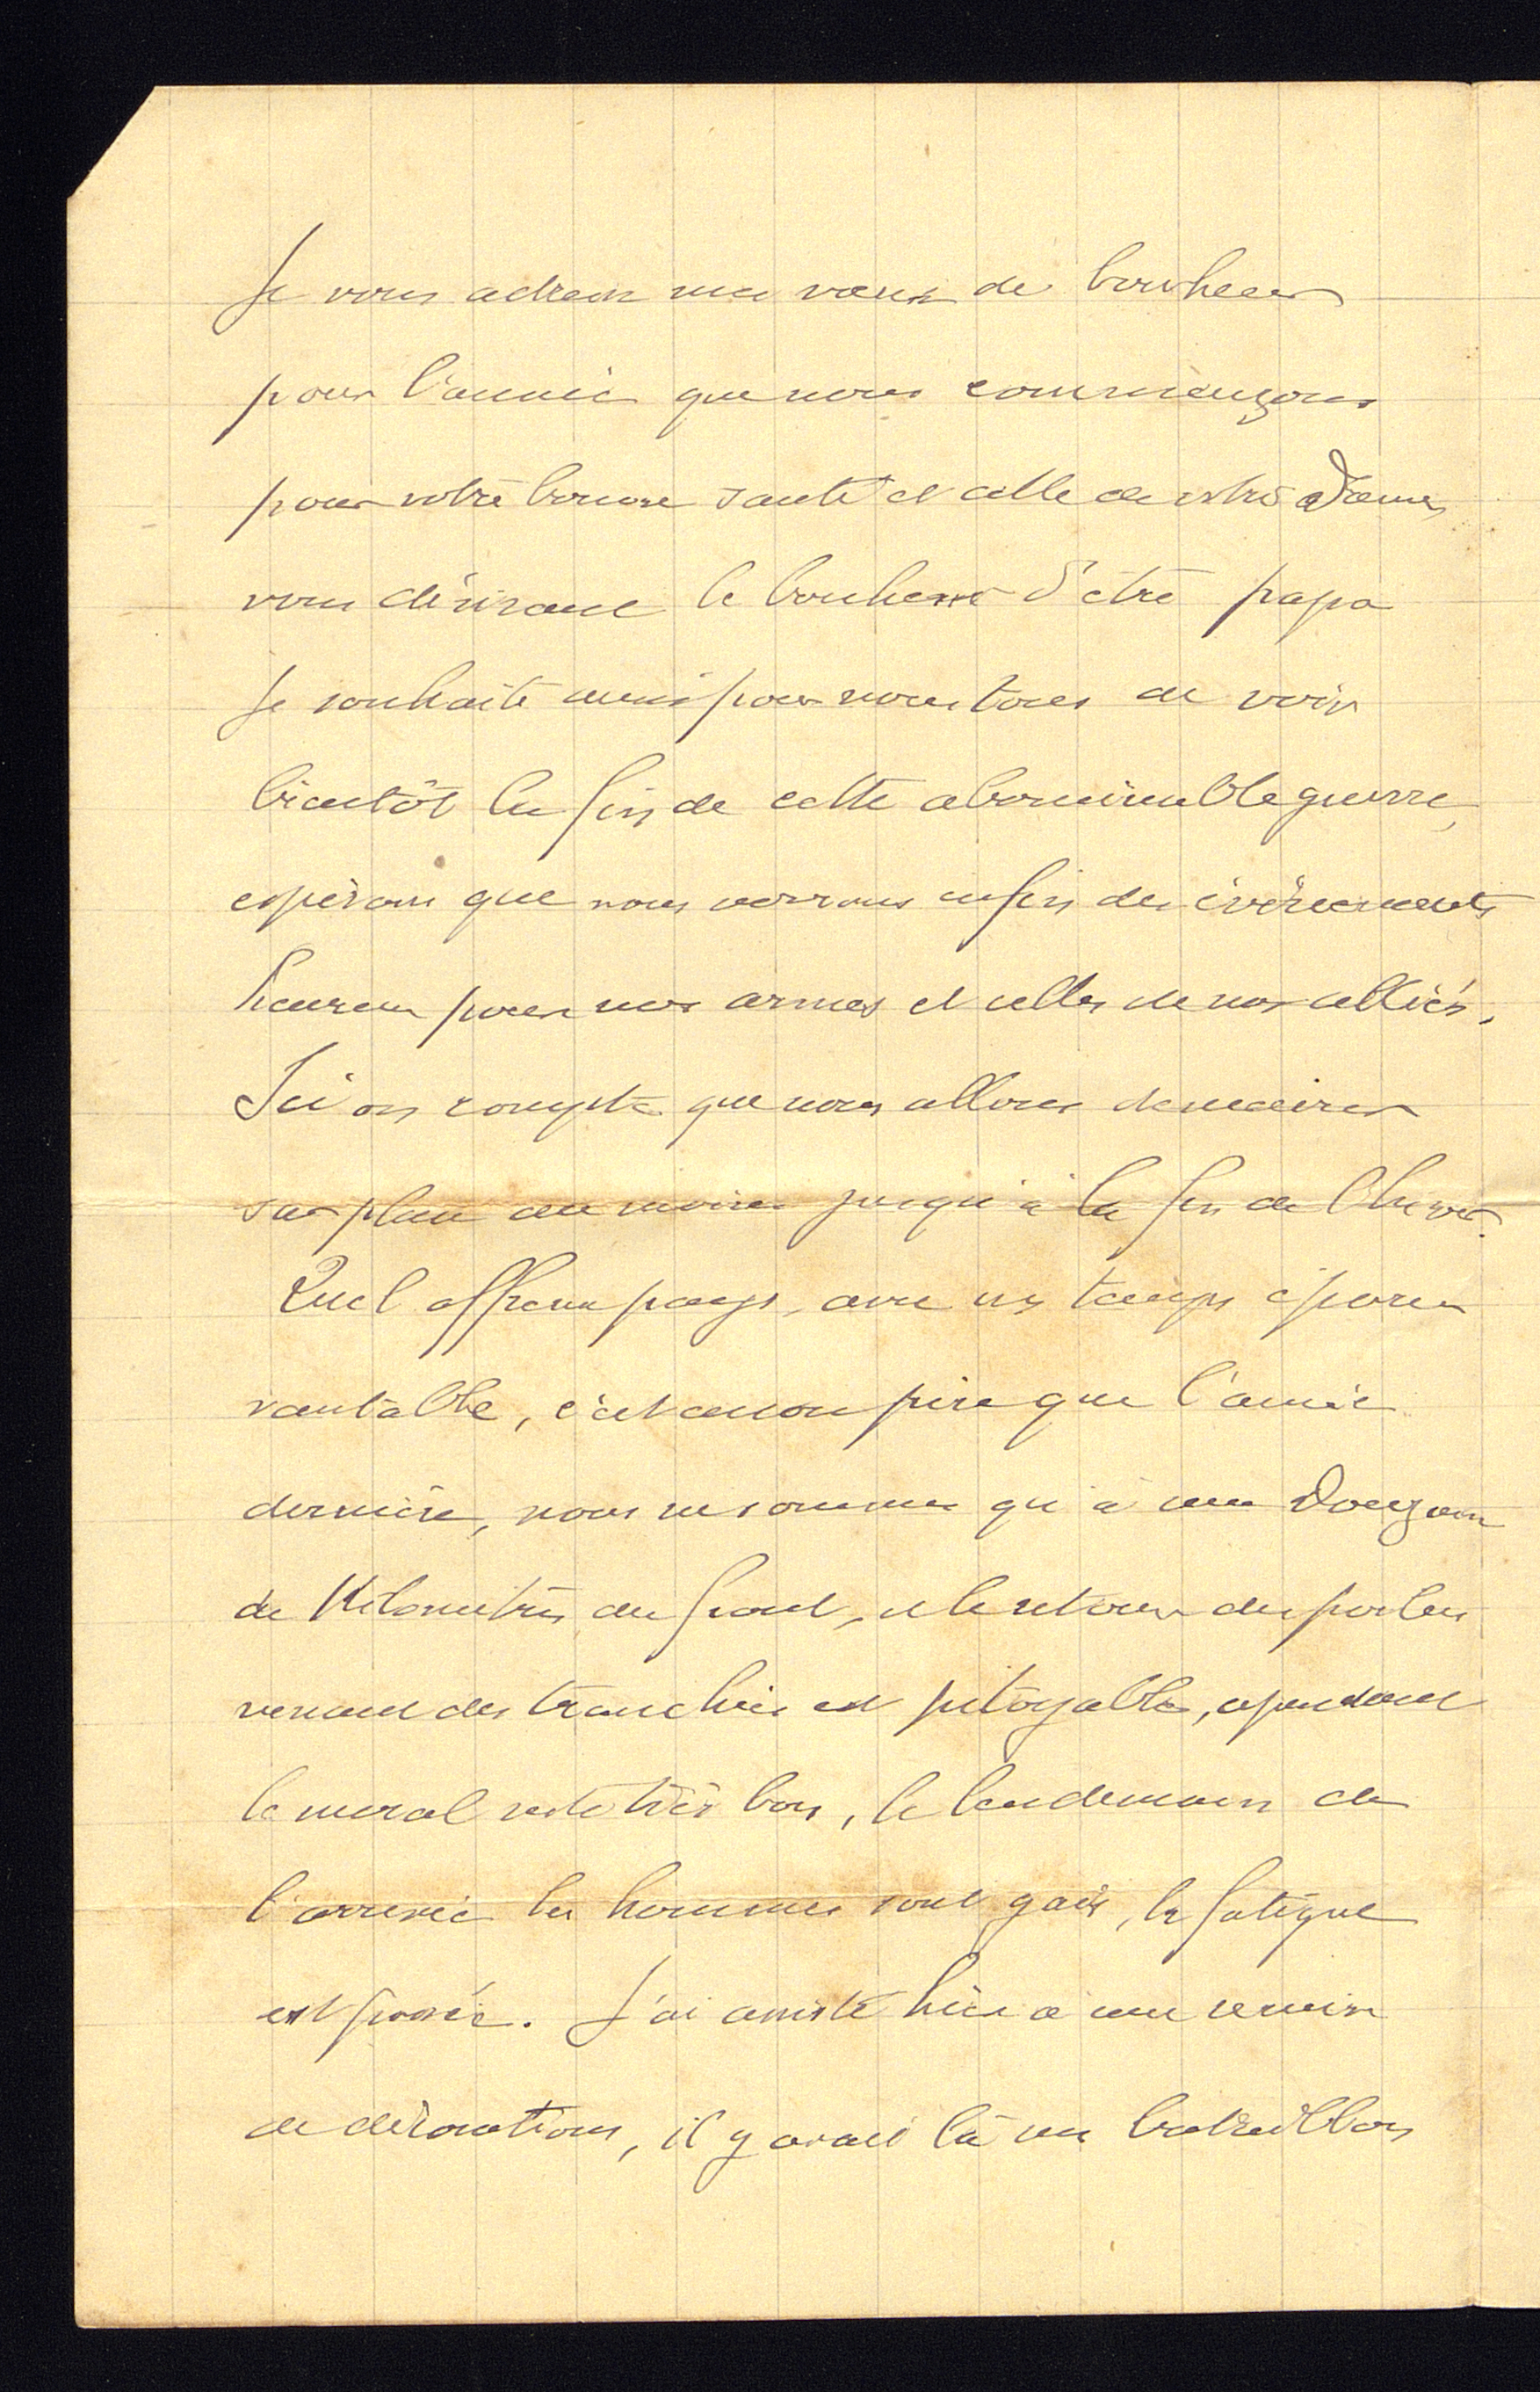 Je vous adresse mes vœux de bonheur
pour l'année que nous commençons
pour votre bonne santé et celle de votre Dame,
vous désirant le bonheur d'être papa
Je souhaite aussi pour nous tous de voir
bientôt la fin de cette abominable guerre,
espérons que nous verrons enfin des événements
heureux pour nos armes et celles de nos alliés.
Ici on compte que nous allons demeurer
sur place au moins jusqu'à la fin de l'hiver.
Quel affreux pays, avec un temps épou
vantable, c'est encore pire que l'année
dernière, nous ne sommes qu'à une douzaine
de Kilomètres du front, et le retour des poilus
venant des tranchées est pitoyable, cependant
le moral reste très bon, le lendemain de
l'arrivée les hommes sont gais, la fatigue
est passée. J'ai assisté hier à une remise
de décorations, il y avait là un bataillon